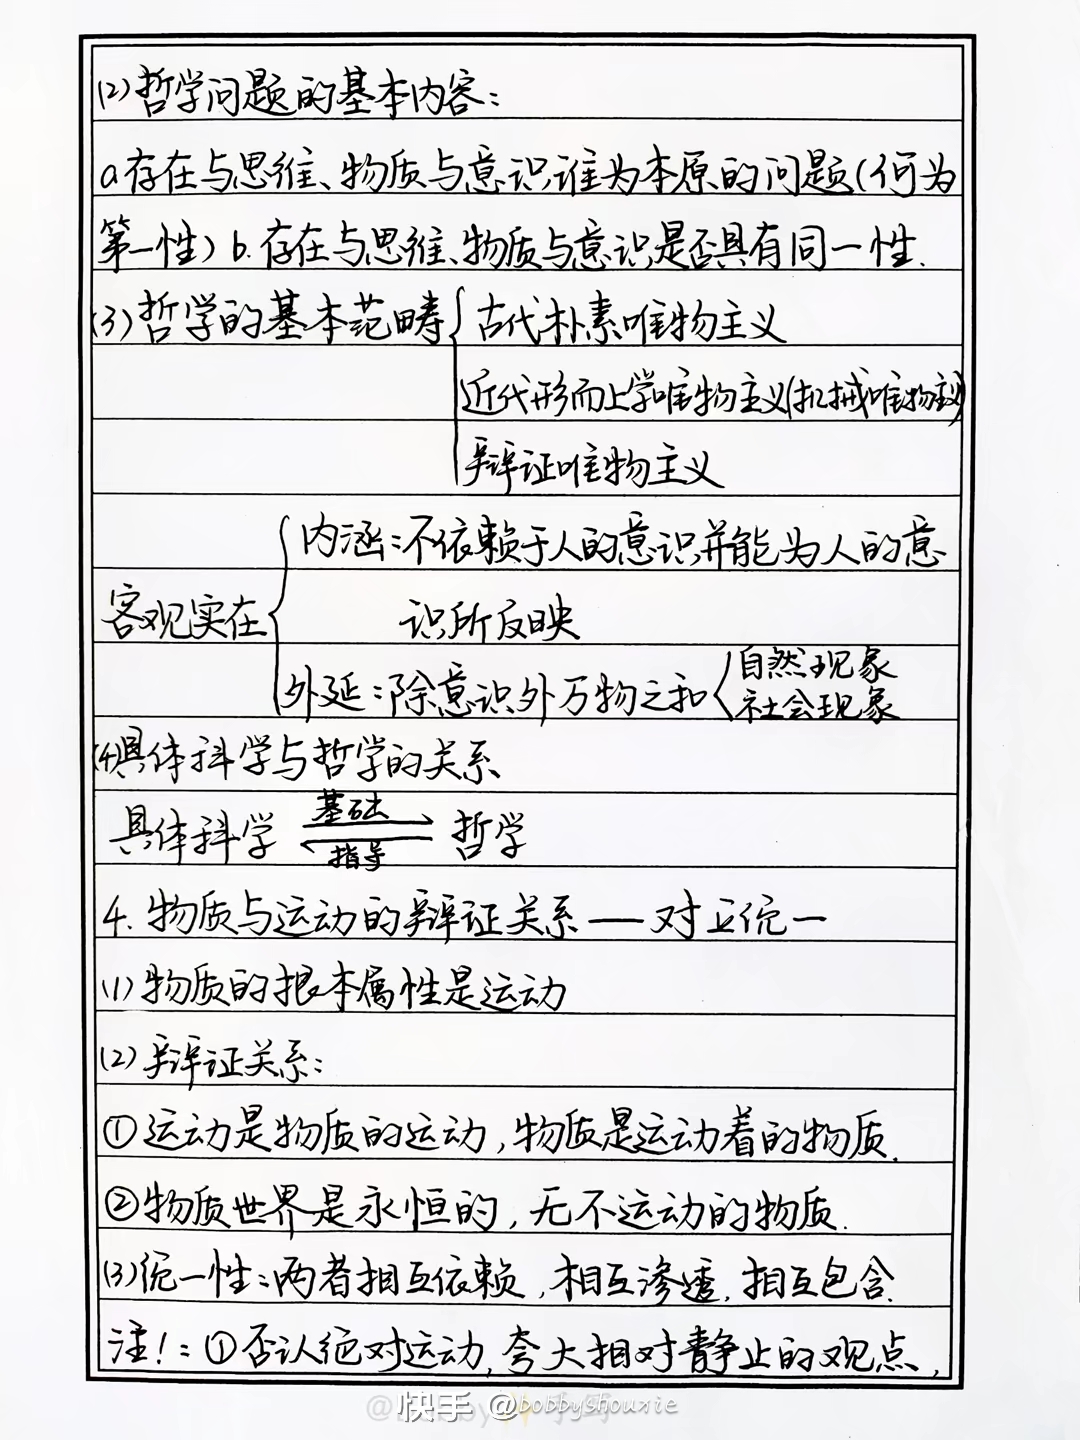 (2)哲学问题的基本内容：
a存在与思维、物质与意识谁为本原的问题(何为
第一性) b.存在与思维、物质与意识是否具有同一性.
(3)哲学的基本范畴 古代朴素唯物主义
近代形而上学唯物主义(机械唯物主义)
辩证唯物主义
内涵：不依赖于人的意识并能为人的意
客观实在 识所反映
外延：除意识外万物之和 自然现象
社会现象
(4)具体科学与哲学的关系
具体科学 基础 指导 哲学
4. 物质与运动的辩证关系——对立统一
(1)物质的根本属性是运动
(2)辩证关系：
①运动是物质的运动,物质是运动着的物质.
②物质世界是永恒的,无不运动的物质.
(3)统一性：两者相互依赖,相互渗透,相互包含.
注!：①否认绝对运动,夸大相对静止的观点,
快手 @bobbyshouxie